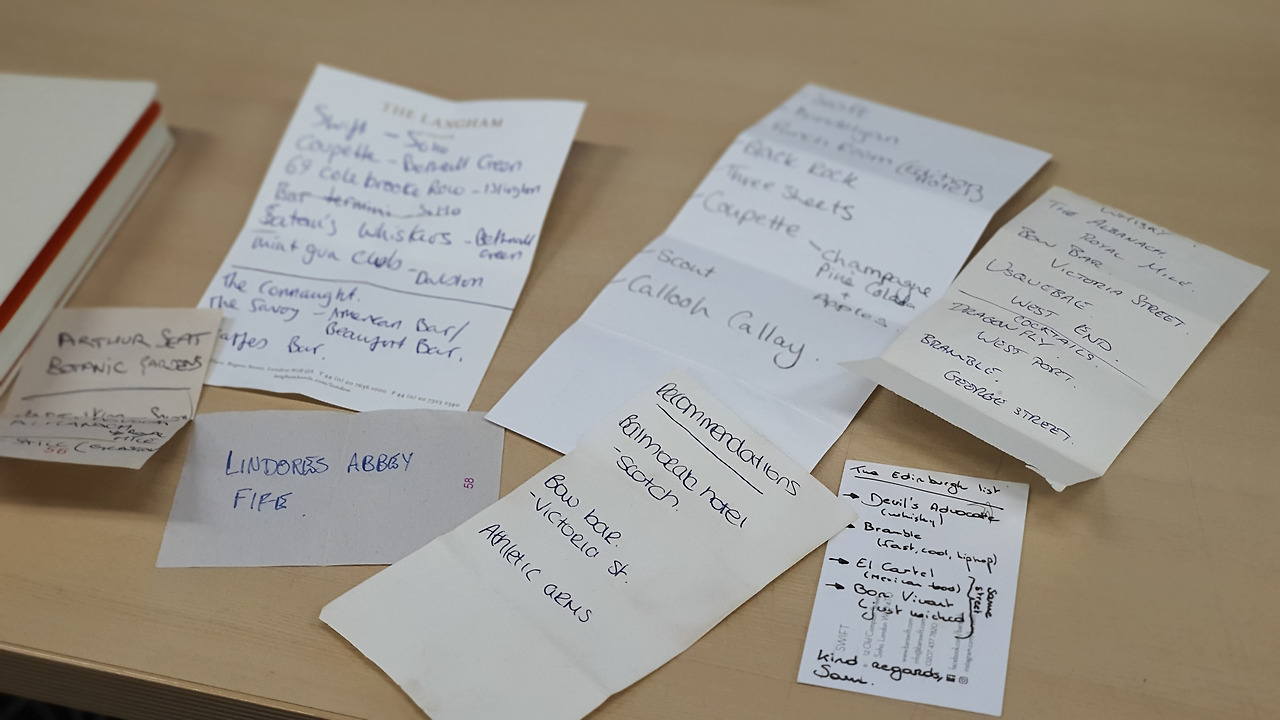 THE LANGHAM
Swift - Soho
Coupette - Bethnall Green
69 Colebrooke Row - Islington
Bar termini Soho
Satan's Whiskers - Bethnall
Green
mint gun club - Dalston
The Connaught.
The Savoy - American Bar/
Beaufort Bar.
Bar.
Swift
Bandolyan
Punch Room
Black Rock
Three Sheets
Coupette - champagne
Pina Colada
+
Apples
Scout
Callooh Callay.
WHISKY.
THE ALBANACH.
ROYAL MILE.
BOW BAR.
VICTORIA STREET.
USQUEBAE.
WEST END.
COCKTAILS
DRAGONFLY.
WEST PORT.
BRAMBLE.
GEORGE STREET.
ARTHUR SEAT
BOTANIC GARDENS
ALBANACH
MILE
56
LINDORES ABBEY
FIFE.
58
Recommendations
Balmoral hotel
-Scotch
Bow bar.
-Victoria St.
Athletic arms
The Edinburgh list
→ Devil's Advocate
(whisky)
→ Bramble
(fast, cool, hiphop)
→ El Cartel
(Mexican food)
→ Bon Vivant
(just wicked)
Same
street
SWIFT
Kind regards,
Sam.